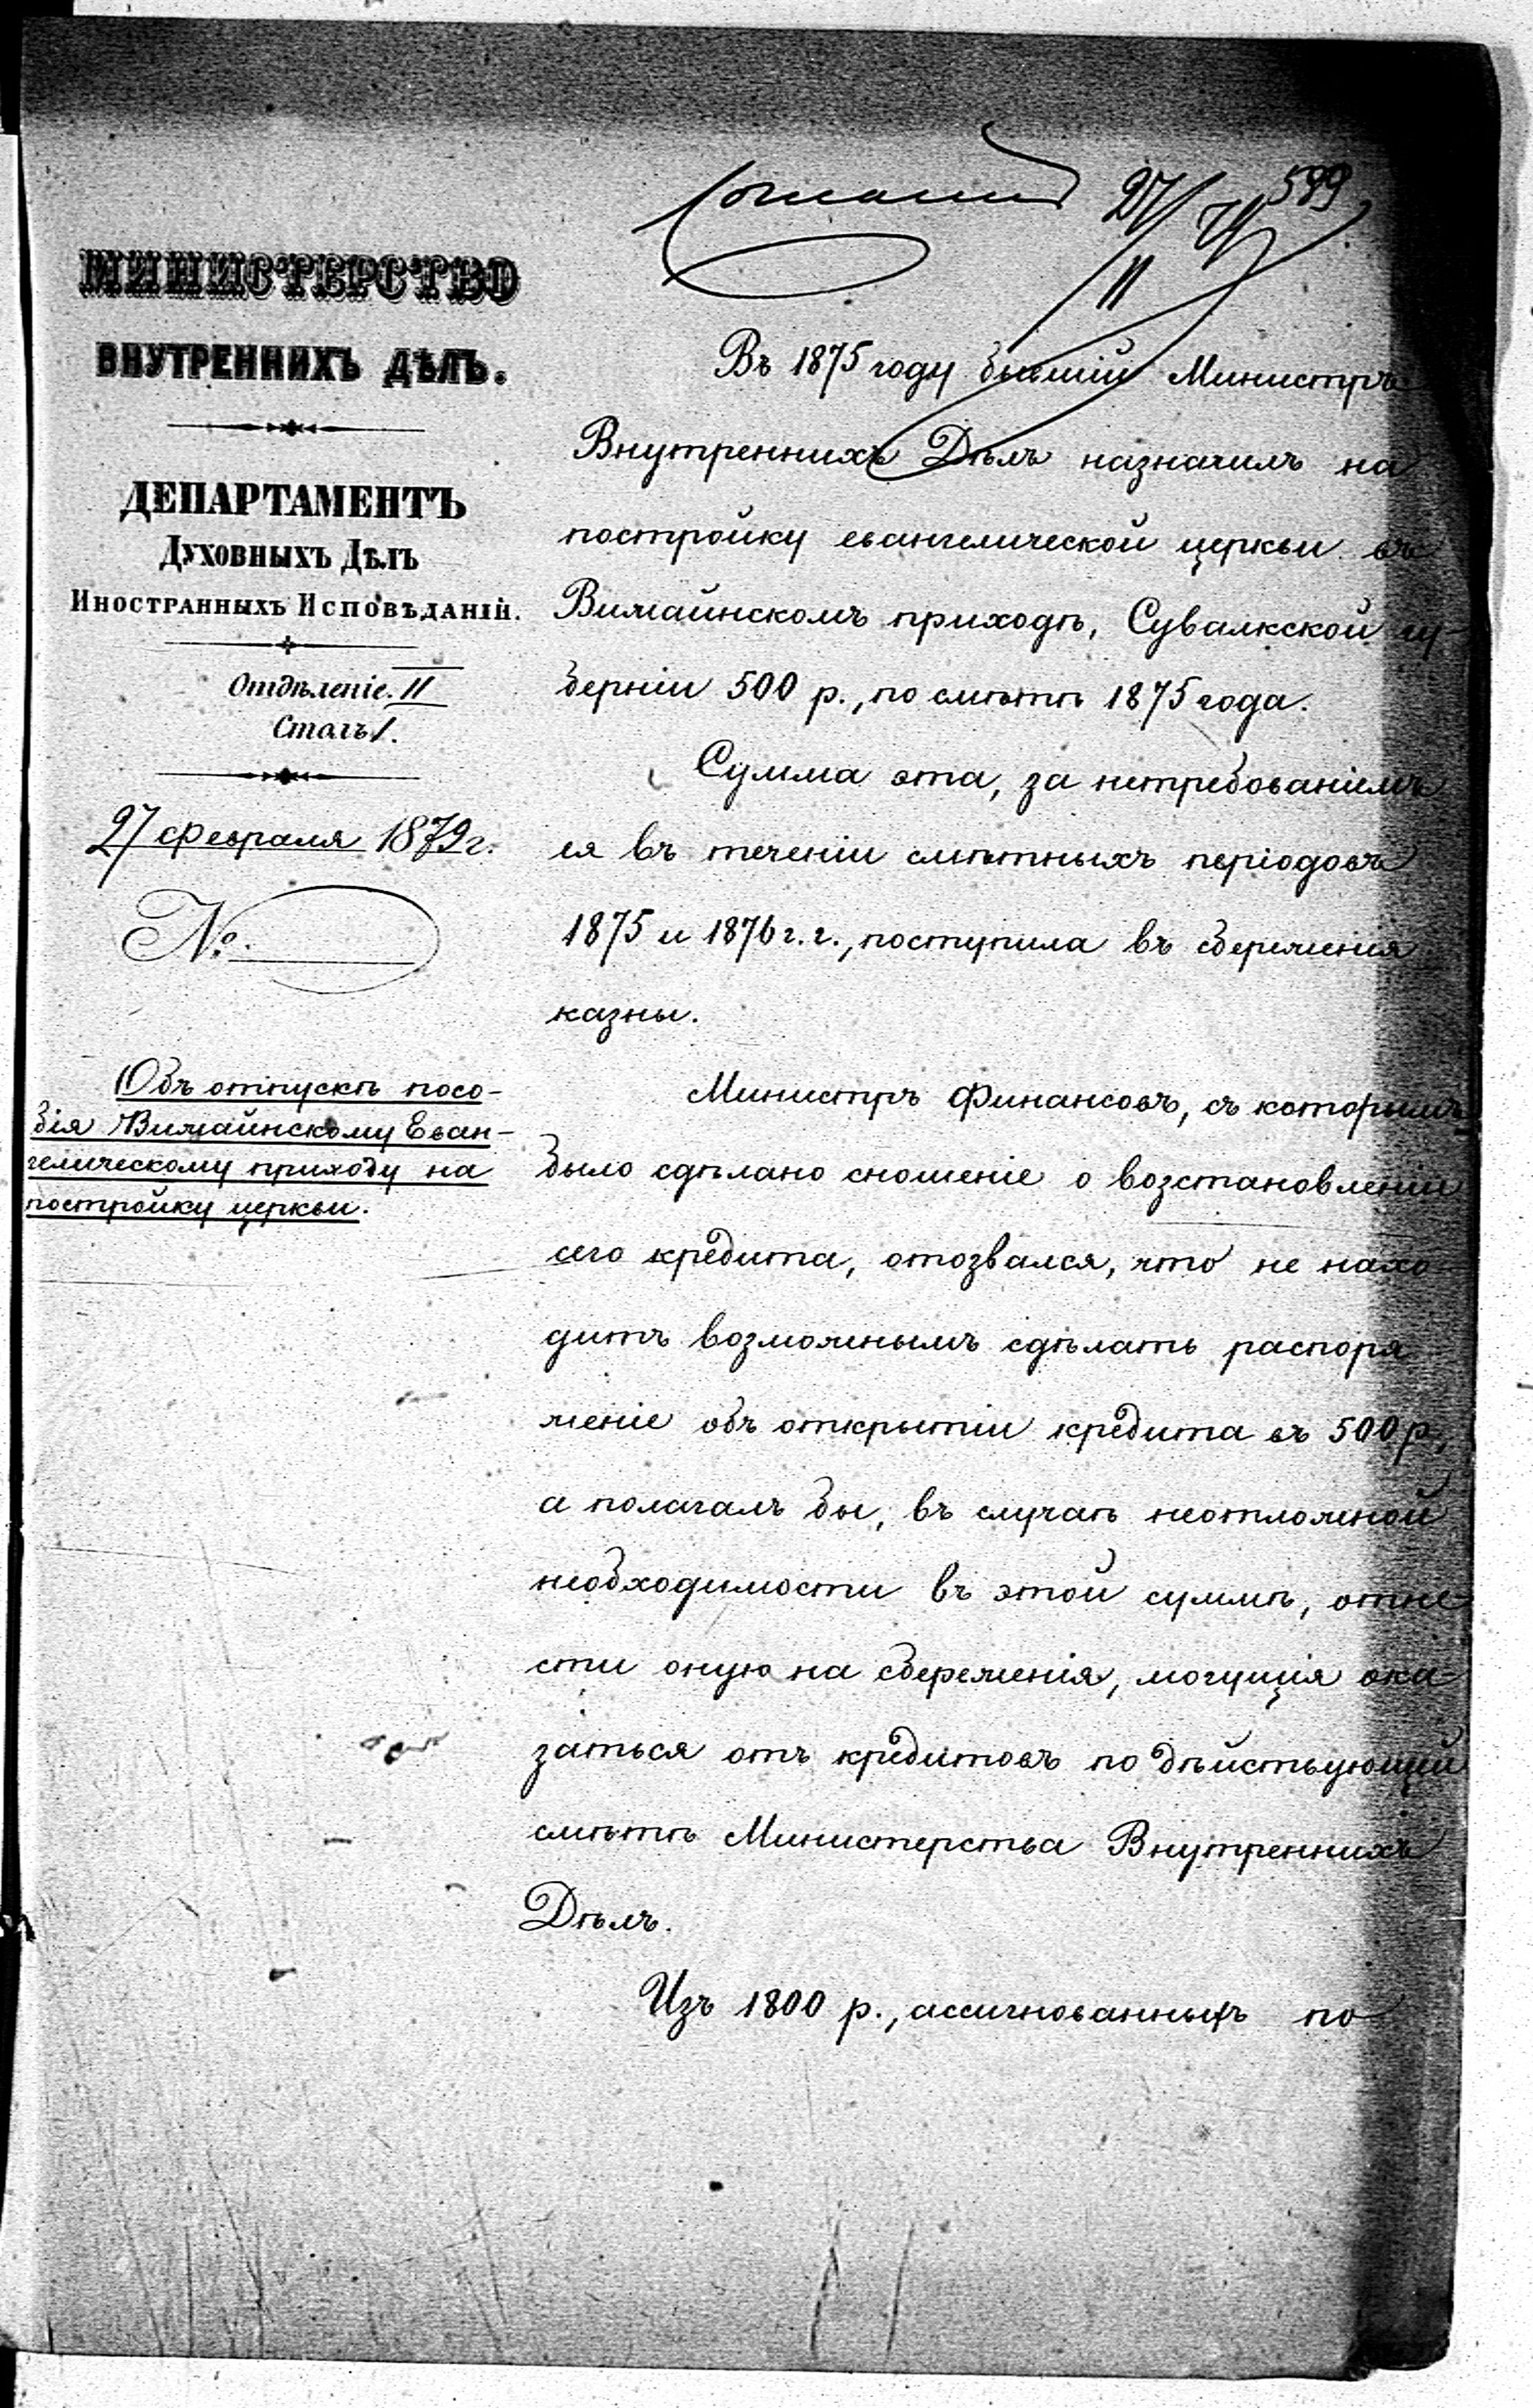 Согласенъ 27/II 79
589
МИНИСТЕРСТВО
ВНУТРЕННИХЪ ДѢЛЪ.
ДЕПАРТАМЕНТЪ
ДУХОВНЫХЪ ДѢЛЪ
ИНОСТРАННЫХЪ ИСПОВѢДАНІЙ.
Отдѣленіе. II
Столъ 1.
27 Февраля 1879 г.
№.
Объ отпускѣ посо-
бія Вижайнскому Еван-
гелическому приходу на
постройку церкви.
Въ 1875 году бывшій Министръ
Внутреннихъ Дѣлъ назначилъ на
постройку евангелической церкви въ
Вижайнскомъ приходѣ, Сувалкской гу-
берніи 500 р., по смѣтѣ 1875 года.
Сумма эта, за нетребованіемъ
ея въ теченіи смѣтныхъ періодовъ
1875 и 1876 г.г., поступила въ сбереженія
казны.
Министръ Финансовъ, съ которымъ
было сдѣлано сношеніе о возстановленіи
сего кредита, отозвался, что не нахо-
дитъ возможнымъ сдѣлать распоря-
женіе объ открытіи кредита въ 500 р.,
а полагалъ бы, въ случаѣ неотложной
необходимости въ этой суммѣ, отне-
сти оную на сбереженія, могущія ока-
заться отъ кредитовъ по дѣйствующей
смѣтѣ Министерства Внутреннихъ
Дѣлъ.
Изъ 1800 р., ассигнованныхъ по